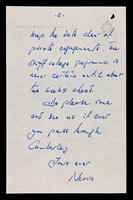 - 2 -
keep the date clear of
private engagements. The
Staff College programme is
never certain until about
two weeks ahead.
Do please come
and see us if ever
you pass through
Camberley
Yours ever